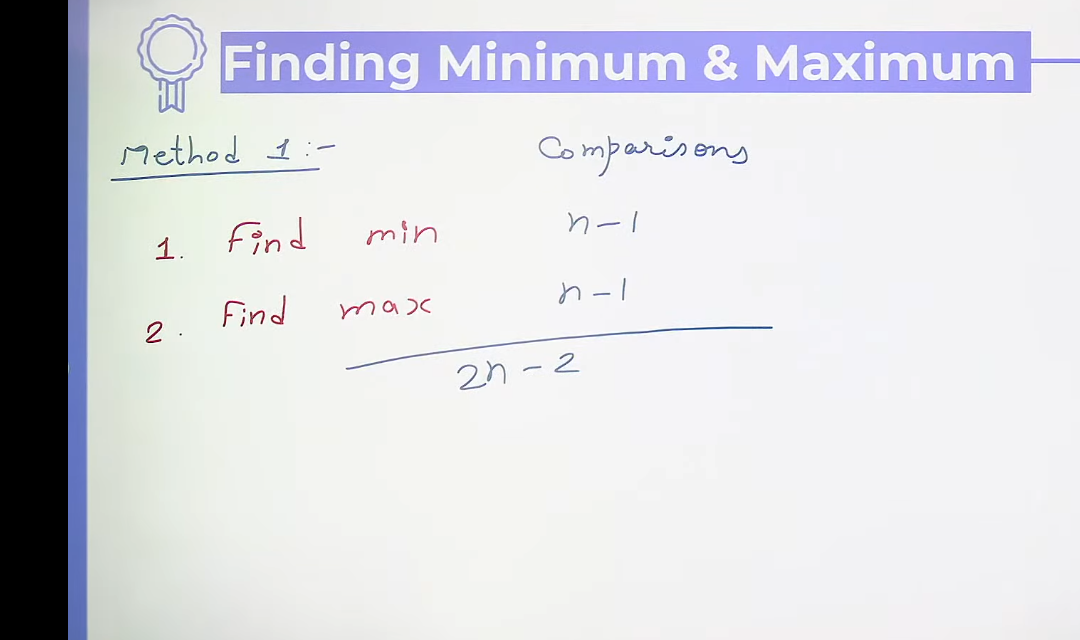 Finding Minimum & Maximum
Method 1:- Comparisons
1. Find min n-1
2. Find max n-1
2n-2